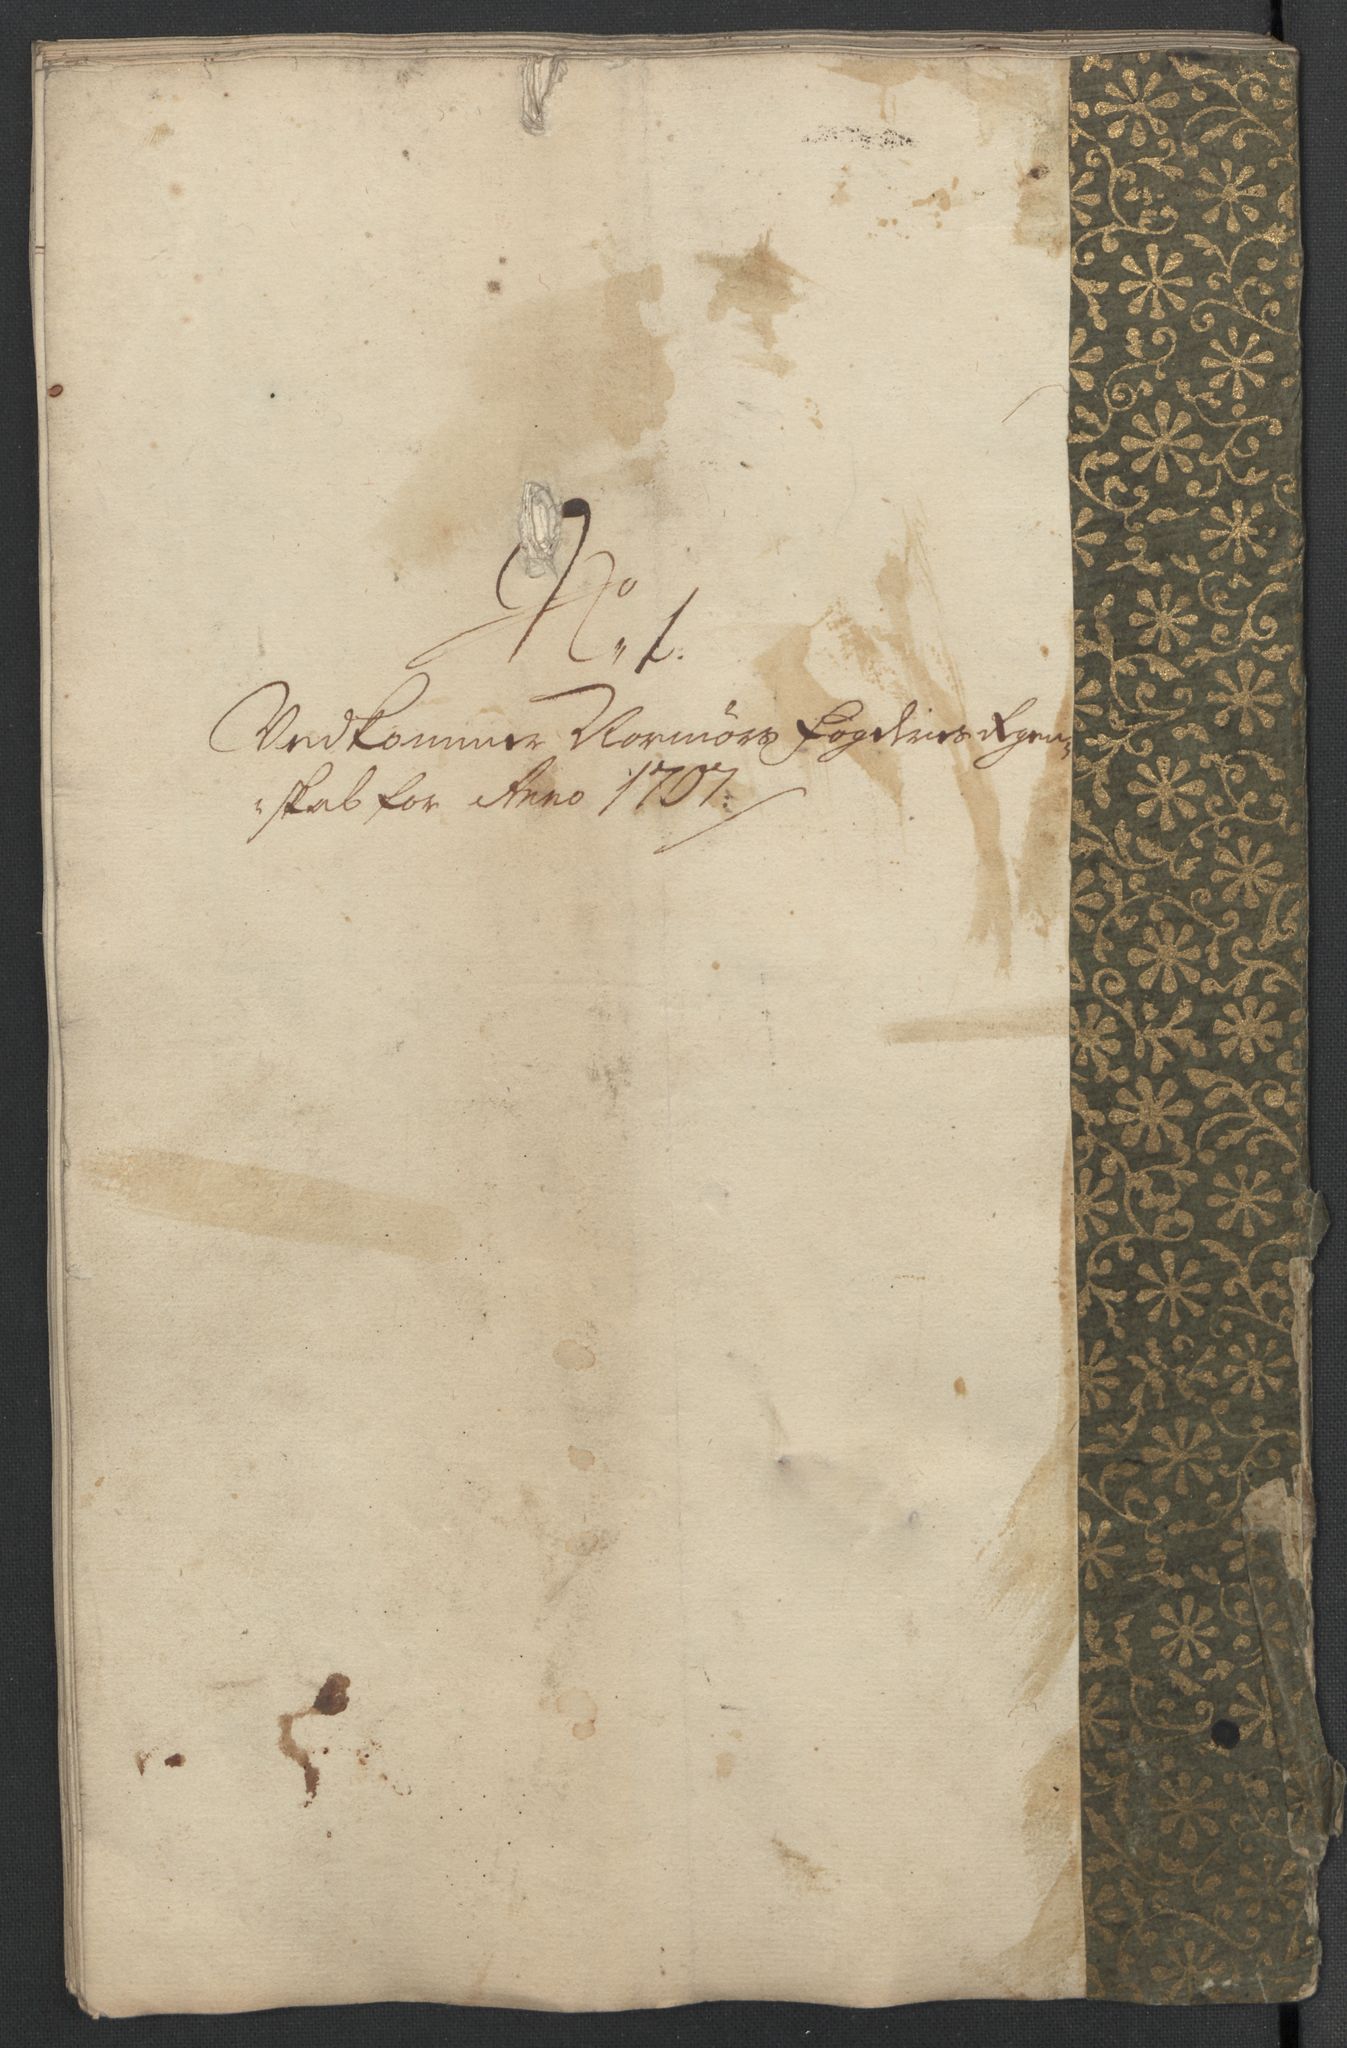 No. 1.
Vedkommer Normørs Fogderies Regen-
skab for Anno 1707.